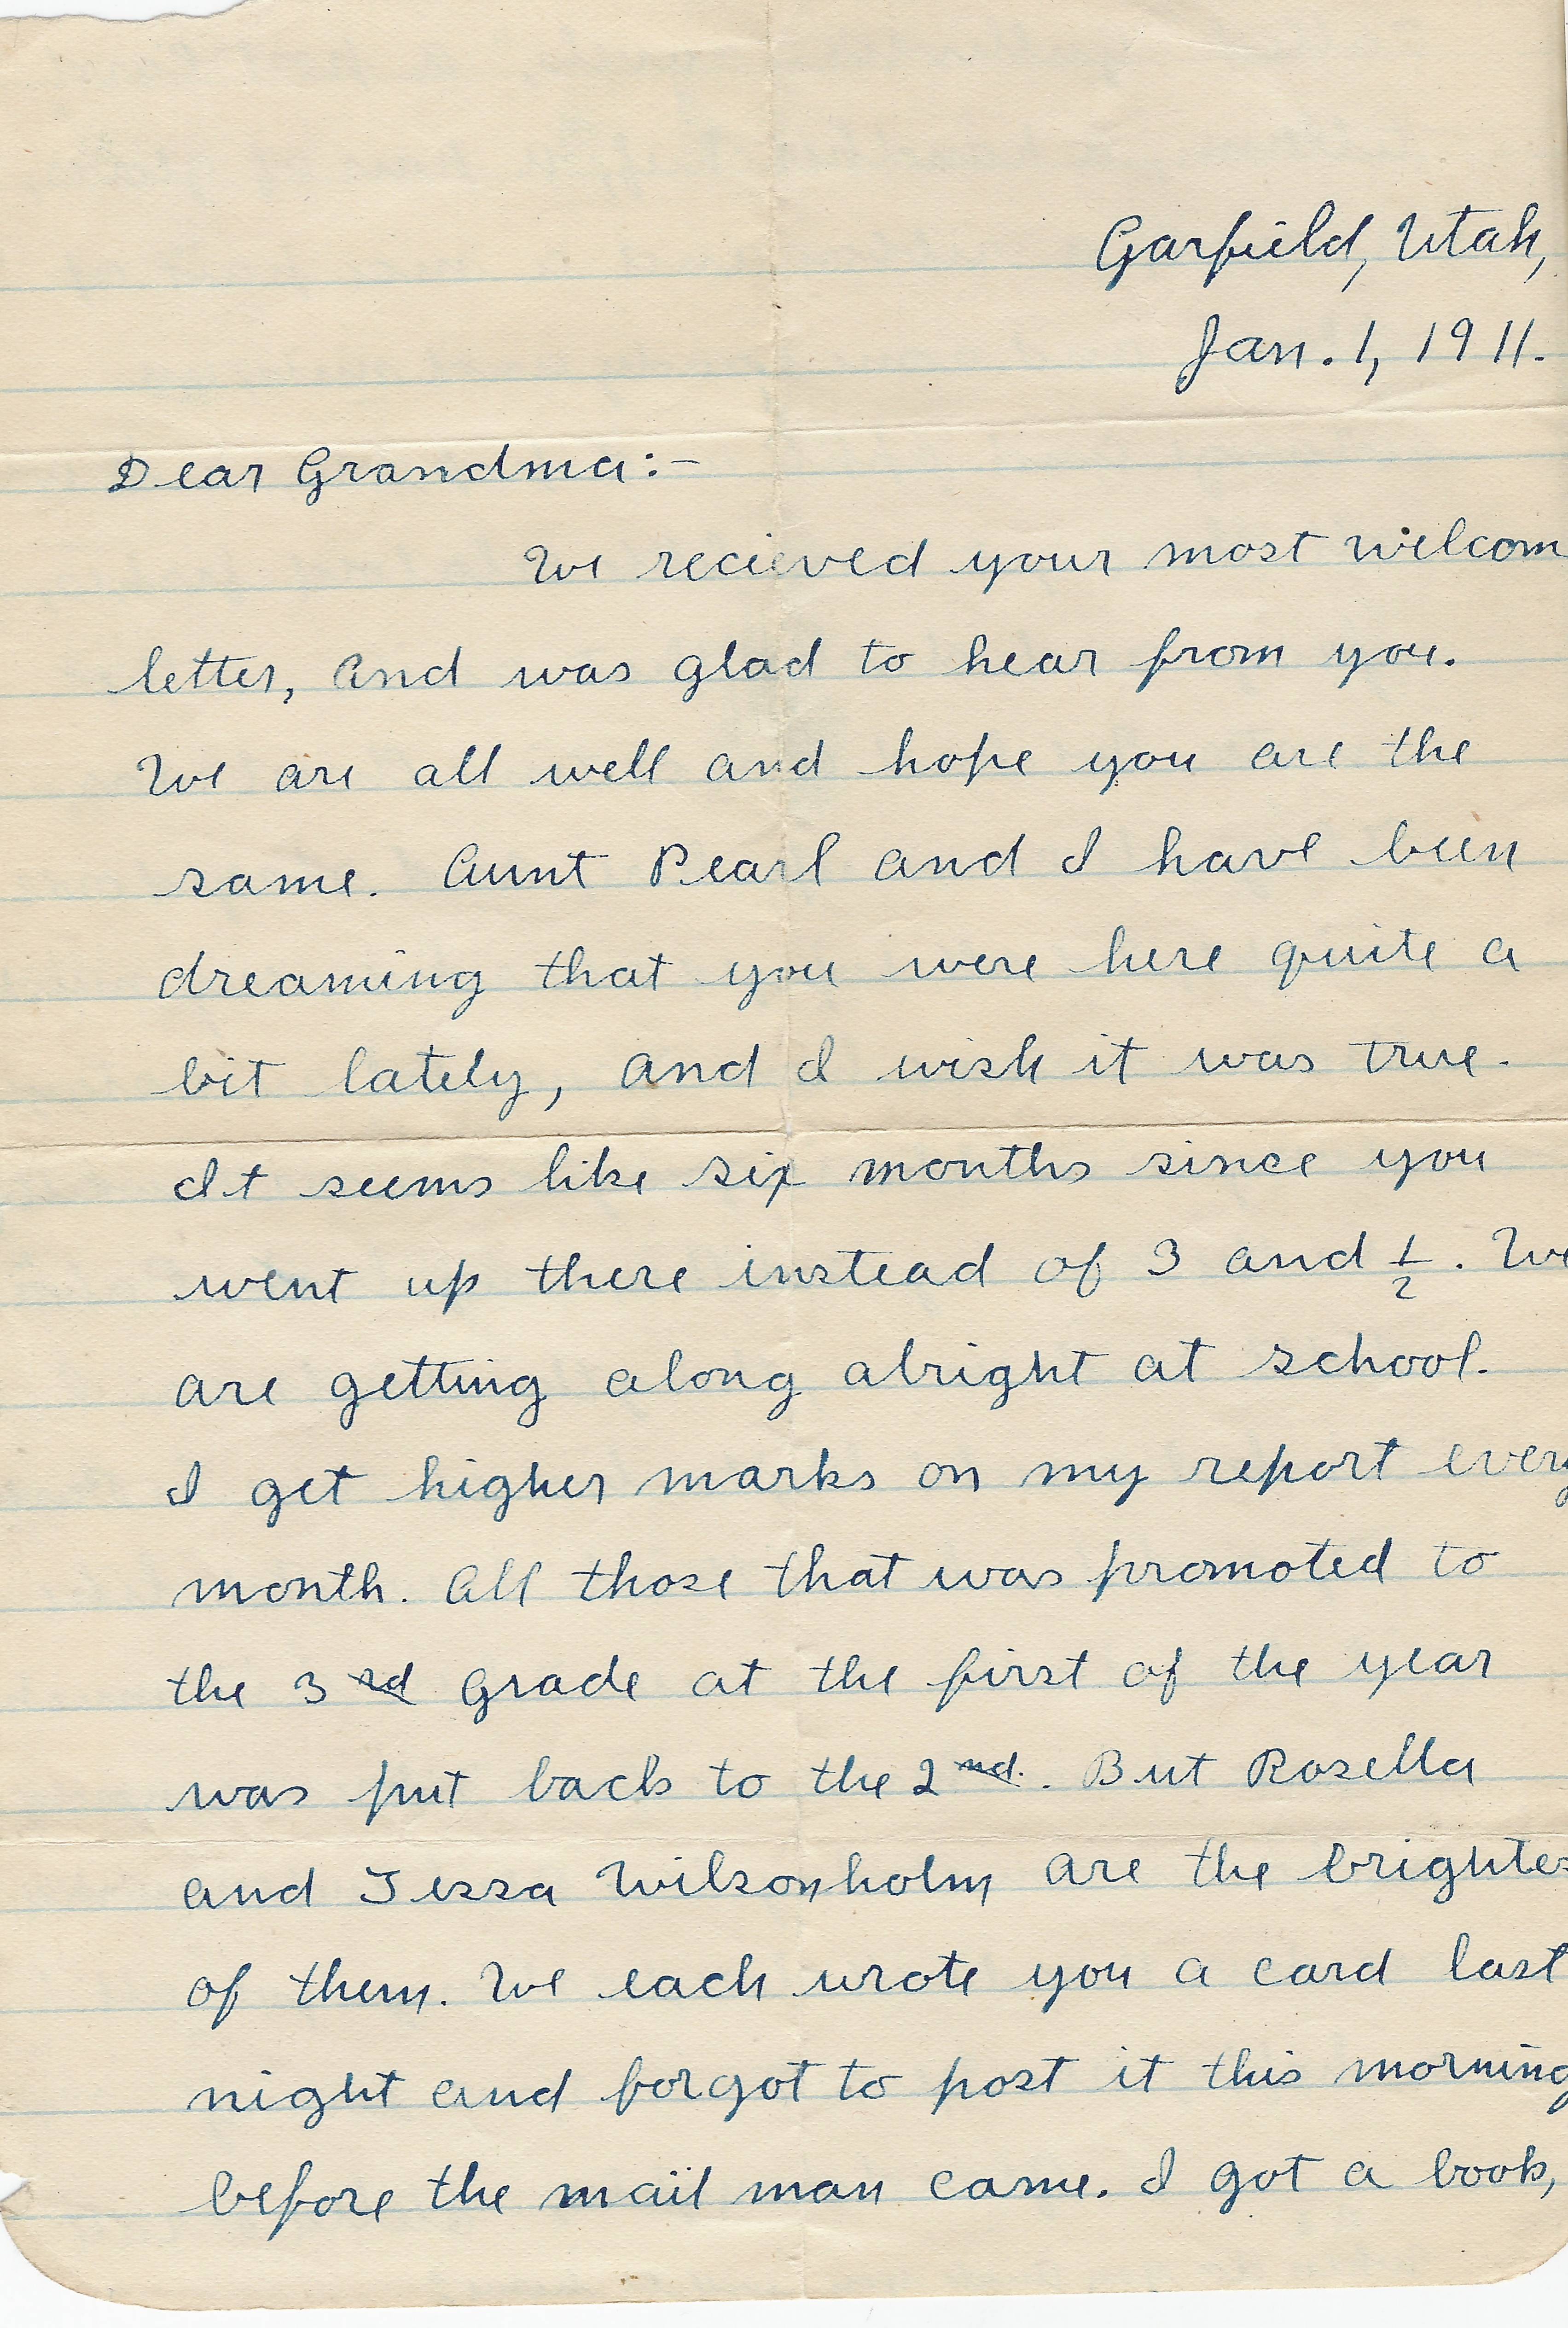 Garfield, Utah,
Jan. 1, 1911.
Dear Grandma:-
We recieved your most welcom
letter, and was glad to hear from you.
We are all well and hope you are the
same. Aunt Pearl and I have been
dreaming that you were here quite a
bit lately, and I wish it was true.
It seems like six months since you
went up there instead of 3 and 1/2. We
are getting along alright at school.
I get higher marks on my report every
month. All those that was promoted to
the 3rd grade at the first of the year
was put back to the 2nd. But Rosella
and Tessa Wilsonholm are the brightes
of them. We each wrote you a card last
night and forgot to post it this morning
before the mail man came. I got a book,